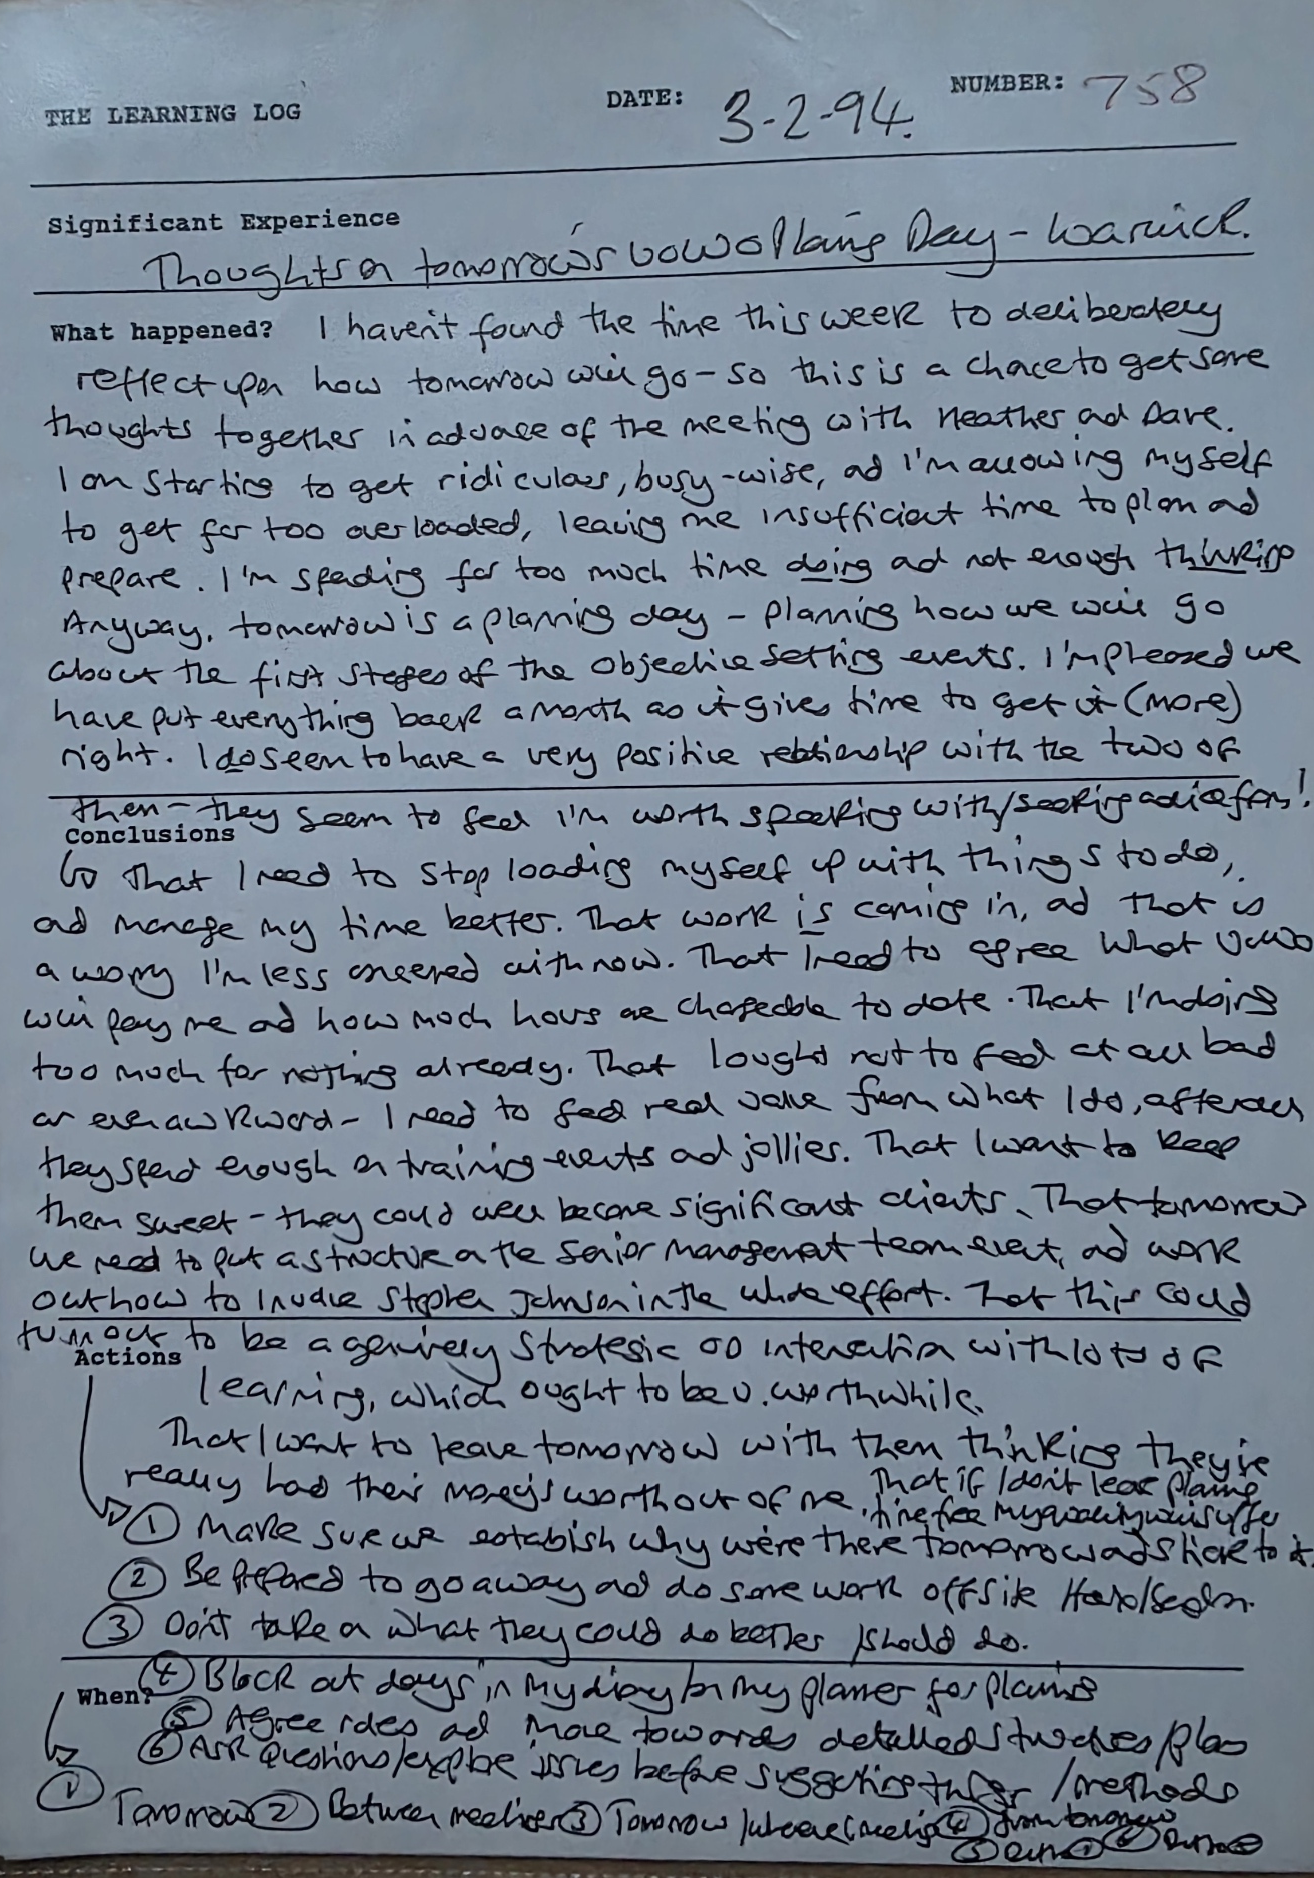 THE LEARNING LOG DATE: 3-2-94. NUMBER: 758
Significant Experience
Thoughts on tomorrow's Planning Day - Warwick.
What happened? I haven't found the time this week to deliberately
reflect upon how tomorrow will go - so this is a chance to get some
thoughts together in advance of the meeting with Heather and Dave.
I am starting to get ridiculous, busy-wise, and I'm allowing myself
to get far too overloaded, leaving me insufficient time to plan and
prepare. I'm spending far too much time doing and not enough thinking
Anyway, tomorrow is a planning day - planning how we will go
about the first stages of the objective setting events. I'm pleased we
have put everything back a month as it gives time to get it (more)
right. I do seem to have a very positive relationship with the two of
them - they seem to feel I'm worth speaking with/seeking advice from!
Conclusions
That I need to stop loading myself up with things to do,
and manage my time better. That work is coming in, and that is
a worry I'm less concerned with now. That I need to agree what
will pay me and how much hours are chargeable to date. That I'm doing
too much for nothing already. That I ought not to feel at all bad
or even awkward - I need to feel real value from what I do, after all
they spend enough on training events and jollies. That I want to keep
them sweet - they could well become significant clients. That tomorrow
we need to put a structure on the senior management team event, and work
out how to involve Stephen Johnson in the whole effort. That this could
turn out to be a genuinely strategic OD intervention with lots of
Actions
learning, which ought to be v. worthwhile.
That I want to leave tomorrow with them thinking they've
really had their money's worth out of me. That if I don't leave planning
time free my quality will suffer
① Make sure we establish why we're there tomorrow and stick to it.
② Be prepared to go away and do some work offsite
③ Don't take on what they could do better/should do.
④ Block out days in my diary/on my planner for planning
When?
⑤ Agree roles and move towards detailed structures/plans
⑥ Ask questions/explore issues before suggesting /methods
① Tomorrow ② Between meetings ③ Tomorrow/whenever meeting ④ From tomorrow
⑤ ① ⑥